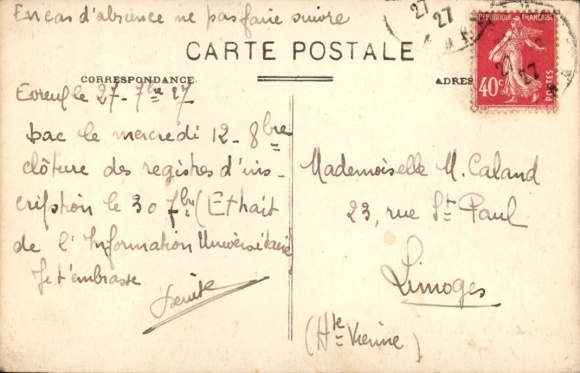 En cas d'absence ne pas faire suivre
CARTE POSTALE
CORRESPONDANCE
ADRES
RÉPUBLIQUE FRANÇAISE
40c
POSTES
27
27
27
27
le 27-7bre 27
bac le mercredi 12-8bre
clôture des registres d'ins-
cription le 30 7bre (Extrait
de l'Information Universitaire
Je t'embrasse
Mademoiselle M. Caland
23, rue St Paul
Limoges
(Hte Vienne)